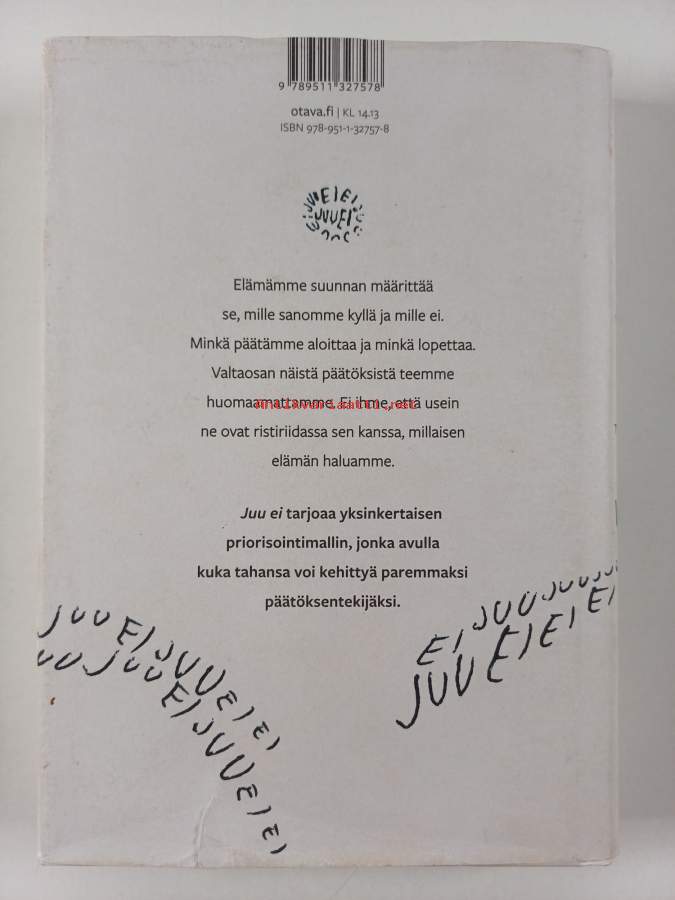 9 789511 327578
otava.fi | KL 14.13
ISBN 978-951-1-32757-8
JUU EI EI
JUU EI
Elämämme suunnan määrittää
se, mille sanomme kyllä ja mille ei.
Minkä päätämme aloittaa ja minkä lopettaa.
Valtaosan näistä päätöksistä teemme
huomaamattamme. Ei ihme, että usein
ne ovat ristiriidassa sen kanssa, millaisen
elämän haluamme.
Juu ei tarjoaa yksinkertaisen
priorisointimallin, jonka avulla
kuka tahansa voi kehittyä paremmaksi
päätöksentekijäksi.
JUU EI JUU EI EI
UU JUU EI JUU EI EI
EI JUU JUU JU
JUU EI EI EI